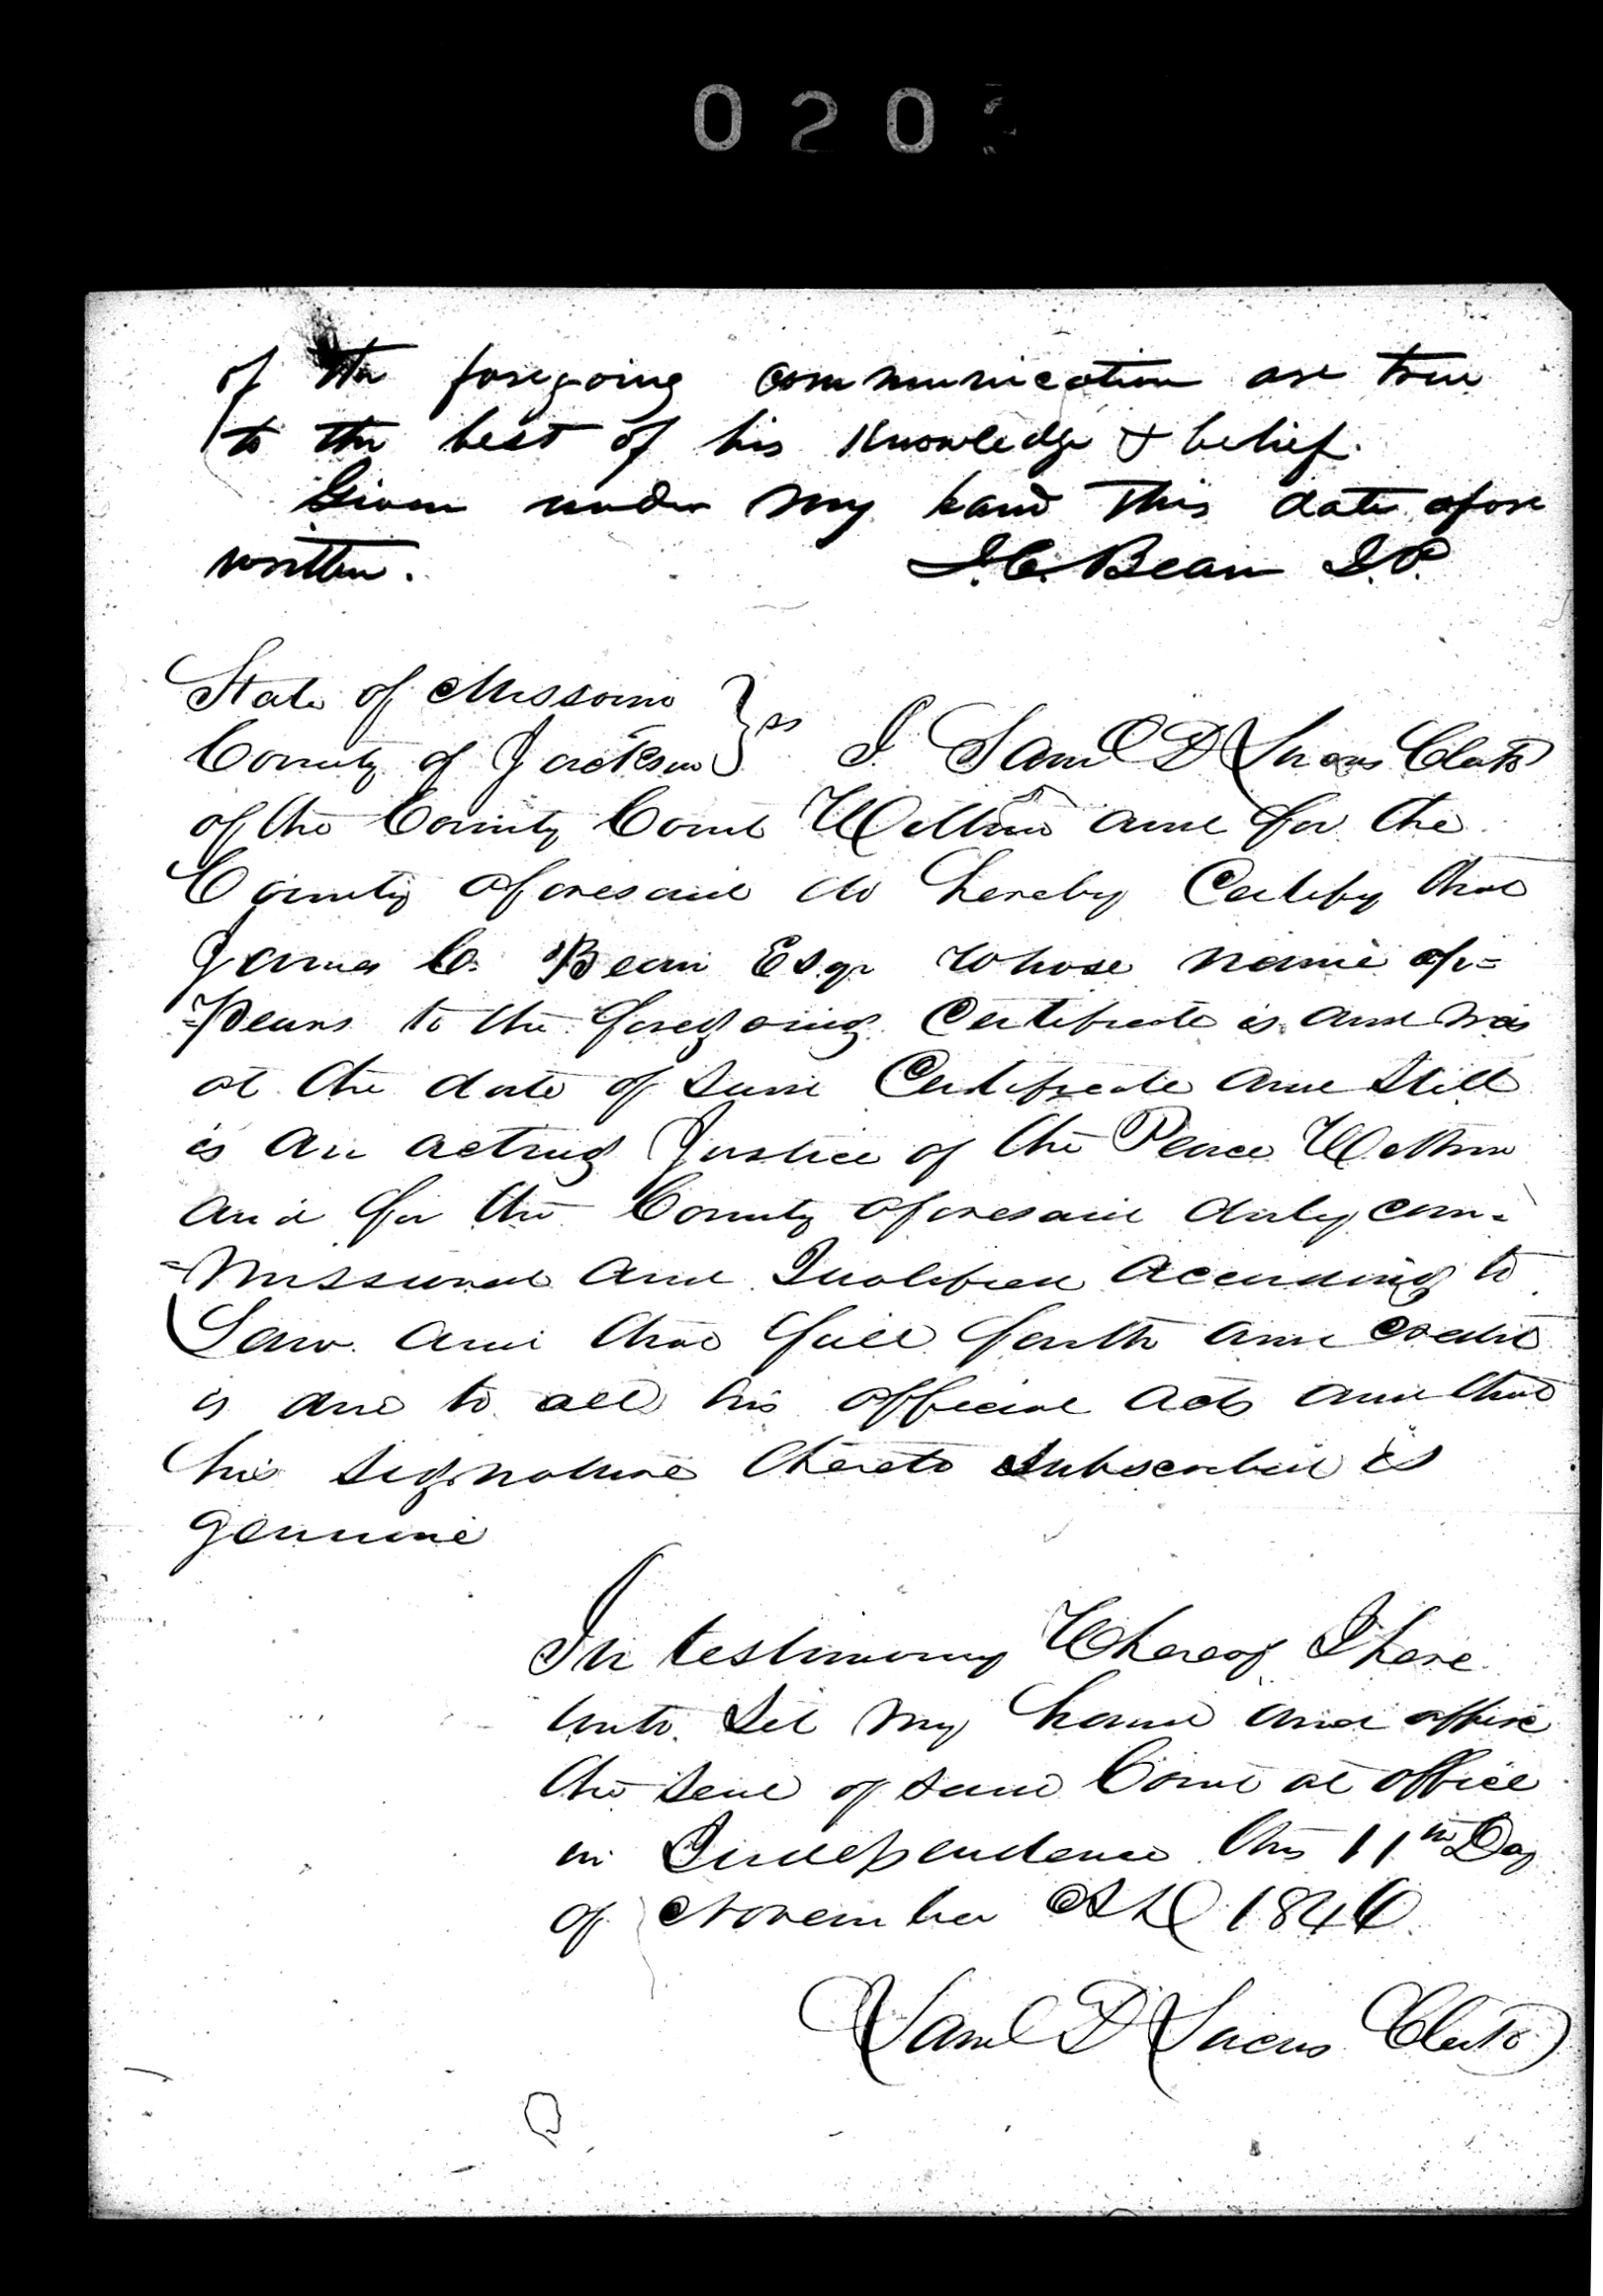 020
of the foregoing communication are true
to the best of his Knowledge & belief.
Given under my hand This date afore
written. J.C. Bean J.P.
State of Missouri
County of Jackson } ss I Saml D Lucas Clerk
of the County Court Within and for the
County aforesaid do hereby Certify that
James C. Bean Esqr whose name ap=
=pears to the foregoing Certificate is and was
at the date of said Certificate and Still
is an acting Justice of the Peace Within
and for the County aforesaid duly com=
=missioned and Qualified According to
Law and that full faith and credit
is due to all his official acts and that
his signature thereto subscribed is
genuine
In testimony Whereof I here
unto Set my hand and affix
the seal of said Court at office
in Independence this 11th Day
of November AD 1846
Saml D Lucas Clerk